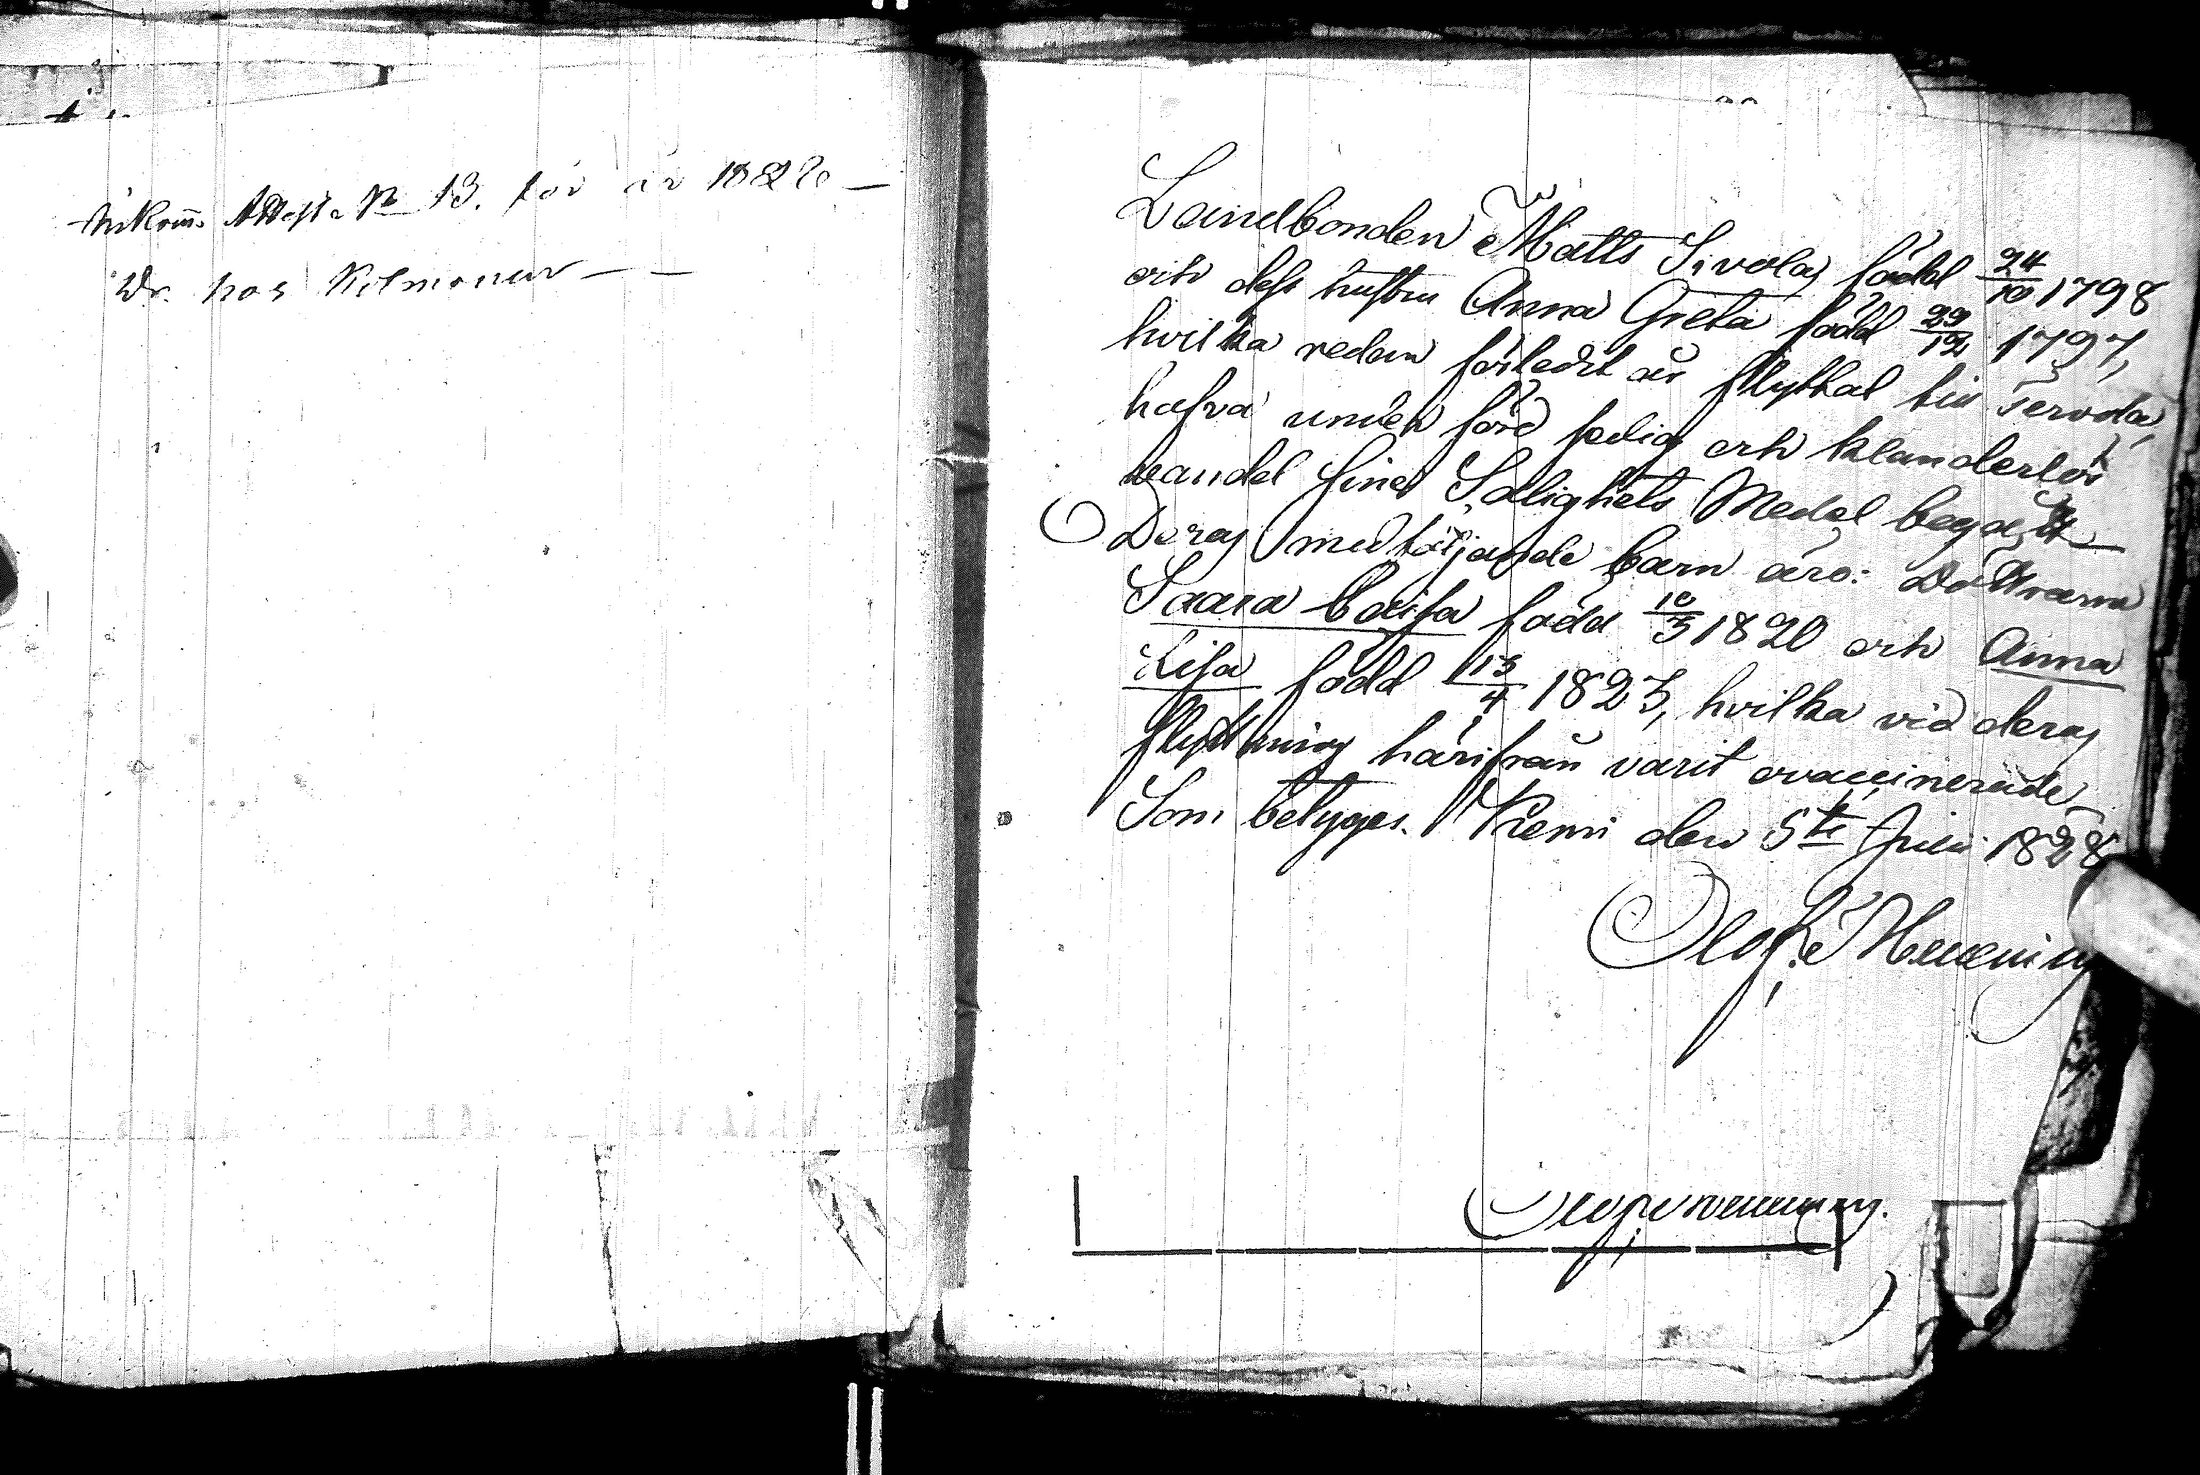 Ankom. Attest N 13. för år 1828 —
Dr. hos Kolmonen — —
Landbonden Matts Sivola, född 24/10 1798
och dess hustru Anna Greta född 29/12 1797,
hvilka redan förledit år flyttat till Tervola,
hafva under förd sedig och klanderlös
vandel sine Salighets Medel begått
Deras medföljande barn äro: Döttrarna
Saara Caisa född 10/3 1820 och Anna
Lisa född 13/4 1823, hvilka vid deras
flyttning härifrån varit ovaccinerade
Som betyges. Kemi den 5te Julii 1828